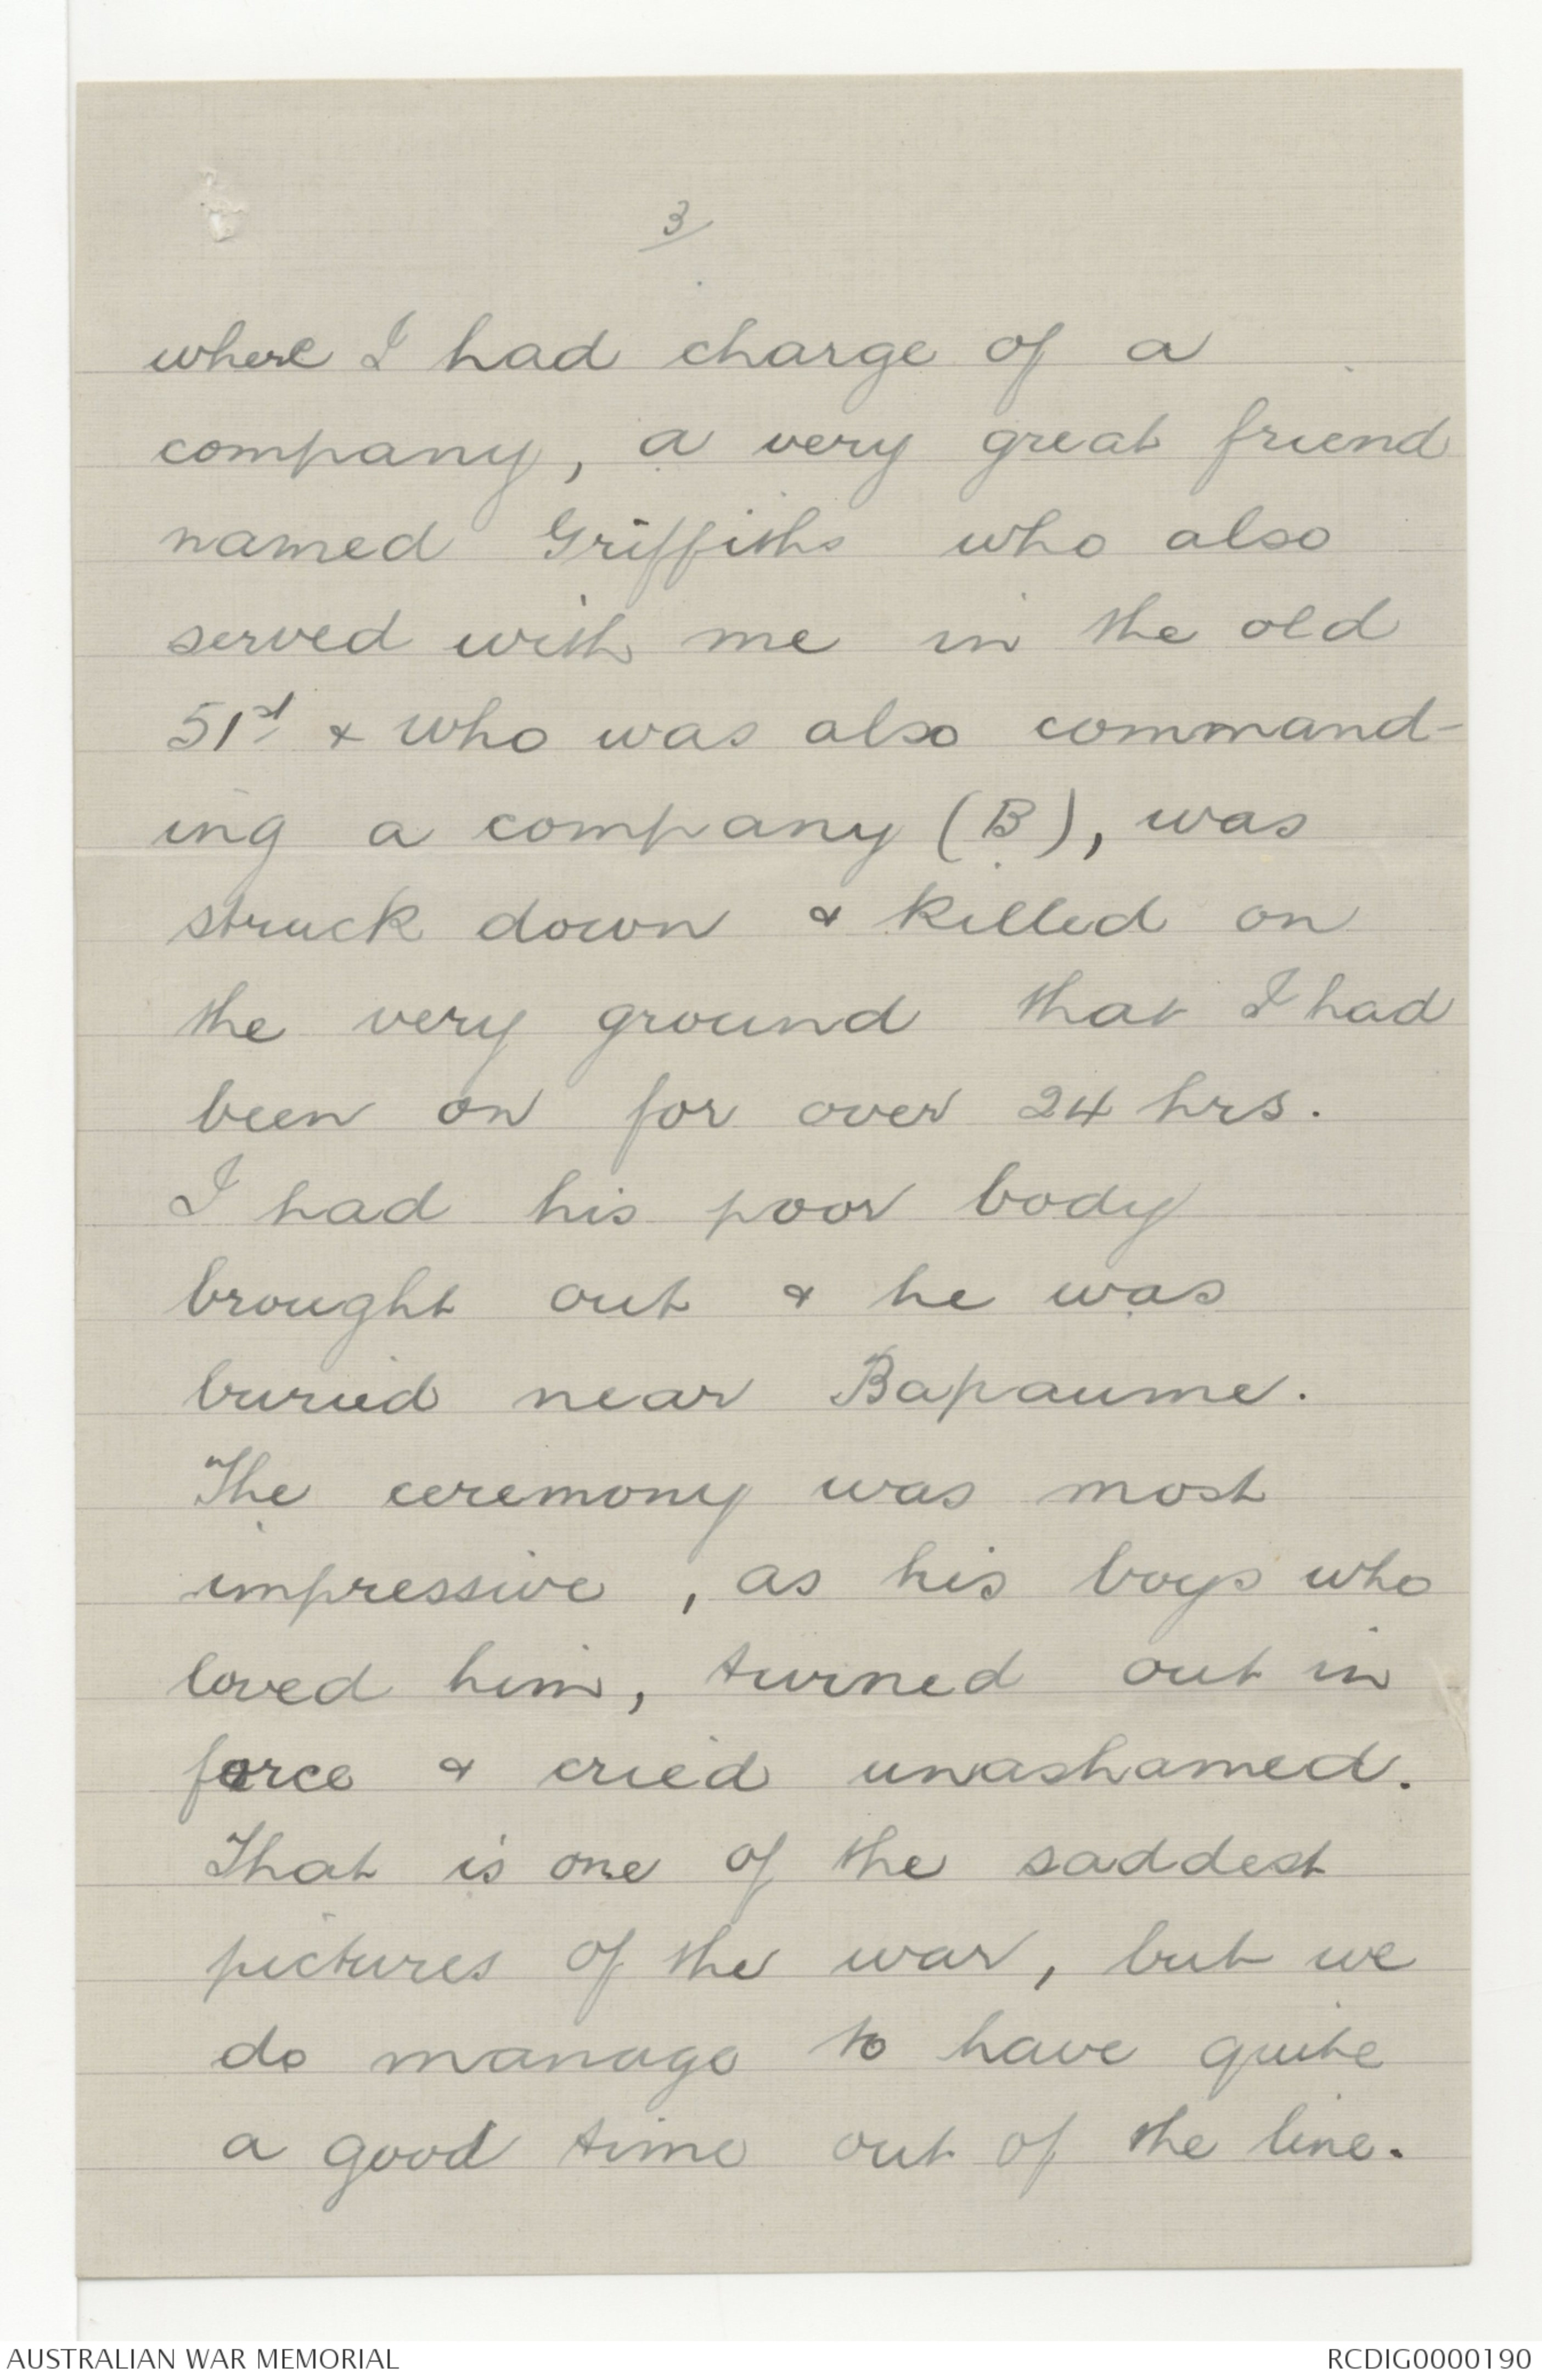 3
where I had charge of a
company, a very great friend
named Griffiths who also
served with me in the old
51st & who was also command-
ing a company (B), was
struck down & killed on
the very ground that I had
been on for over 24 hrs.
I had his poor body
brought out & he was
buried near Bapaume.
The ceremony was most
impressive, as his boys who
loved him, turned out in
force & cried unashamed.
That is one of the saddest
pictures of the war, but we
do manage to have quite
a good time out of the line.
AUSTRALIAN WAR MEMORIAL
RCDIG0000190